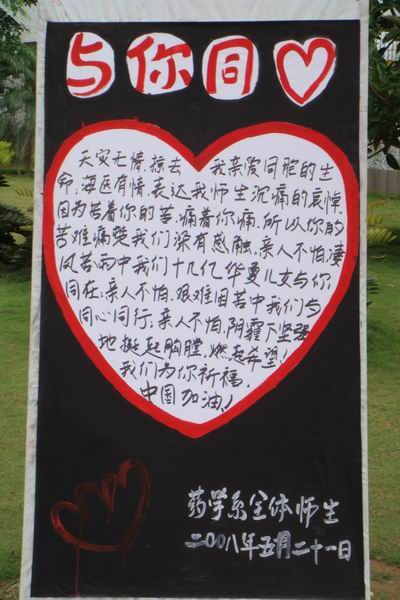 与你同
天灾无情，掠去 我亲爱同胞的生
命，海医有情，表达我师生沉痛的哀悼，
因为苦着你的苦，痛着你痛，所以你的
苦难痛楚我们深有感触，亲人不怕，凄
风苦雨中我们十几亿华夏儿女与你
同在，亲人不怕，艰难困苦中我们与
同心同行，亲人不怕，阴霾下坚强
地挺起胸膛，燃起希望！
我们为你祈福，
中国加油！
药学系全体师生
二00八年五月二十一日